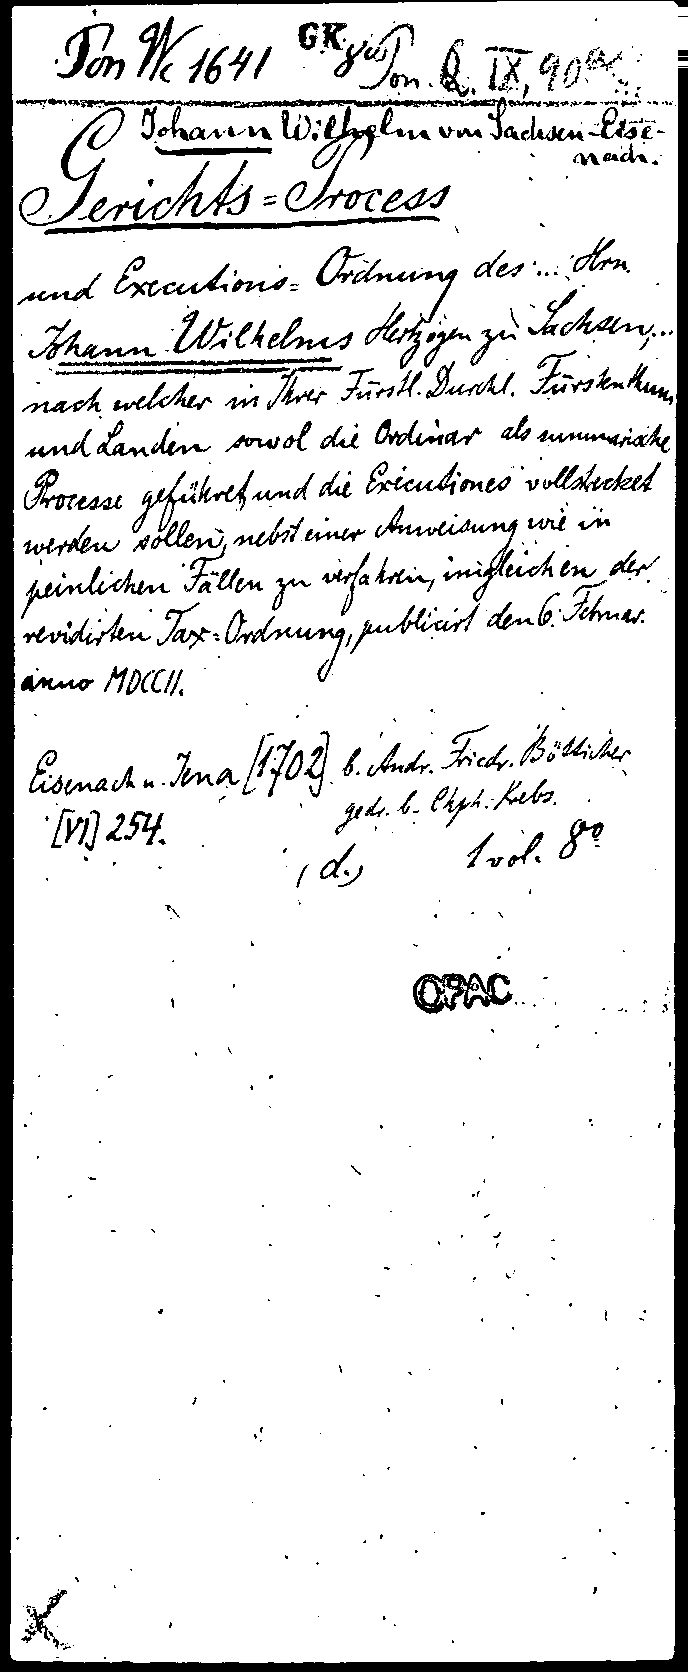 Pon Wc 1641 GK 8° Pon. IX, 90
Johann Wilhelm von Sachsen-Eise-
nach.
Gerichts=Process
und Executions=Ordnung des... Hrn.
Johann Wilhelms Hertzogen zu Sachsen,...
nach welcher in Ihrer Fürstl. Durchl. Fürstenthum
und Landen sowol die Ordinar als summarische
Processe geführet und die Executiones vollstrecket
werden sollen, nebst einer Anweisung wie in
peinlichen Fällen zu verfahren, ingleichen der
revidirten Tax=Ordnung, publicirt den 6. Februar.
anno MDCCII.
Eisenach u. Jena [1702] b. Andr. Friedr. Bötticher
gedr. b. Chph. Krebs.
[VI] 254.
(d.) 1 vol. 8°
OPAC
X